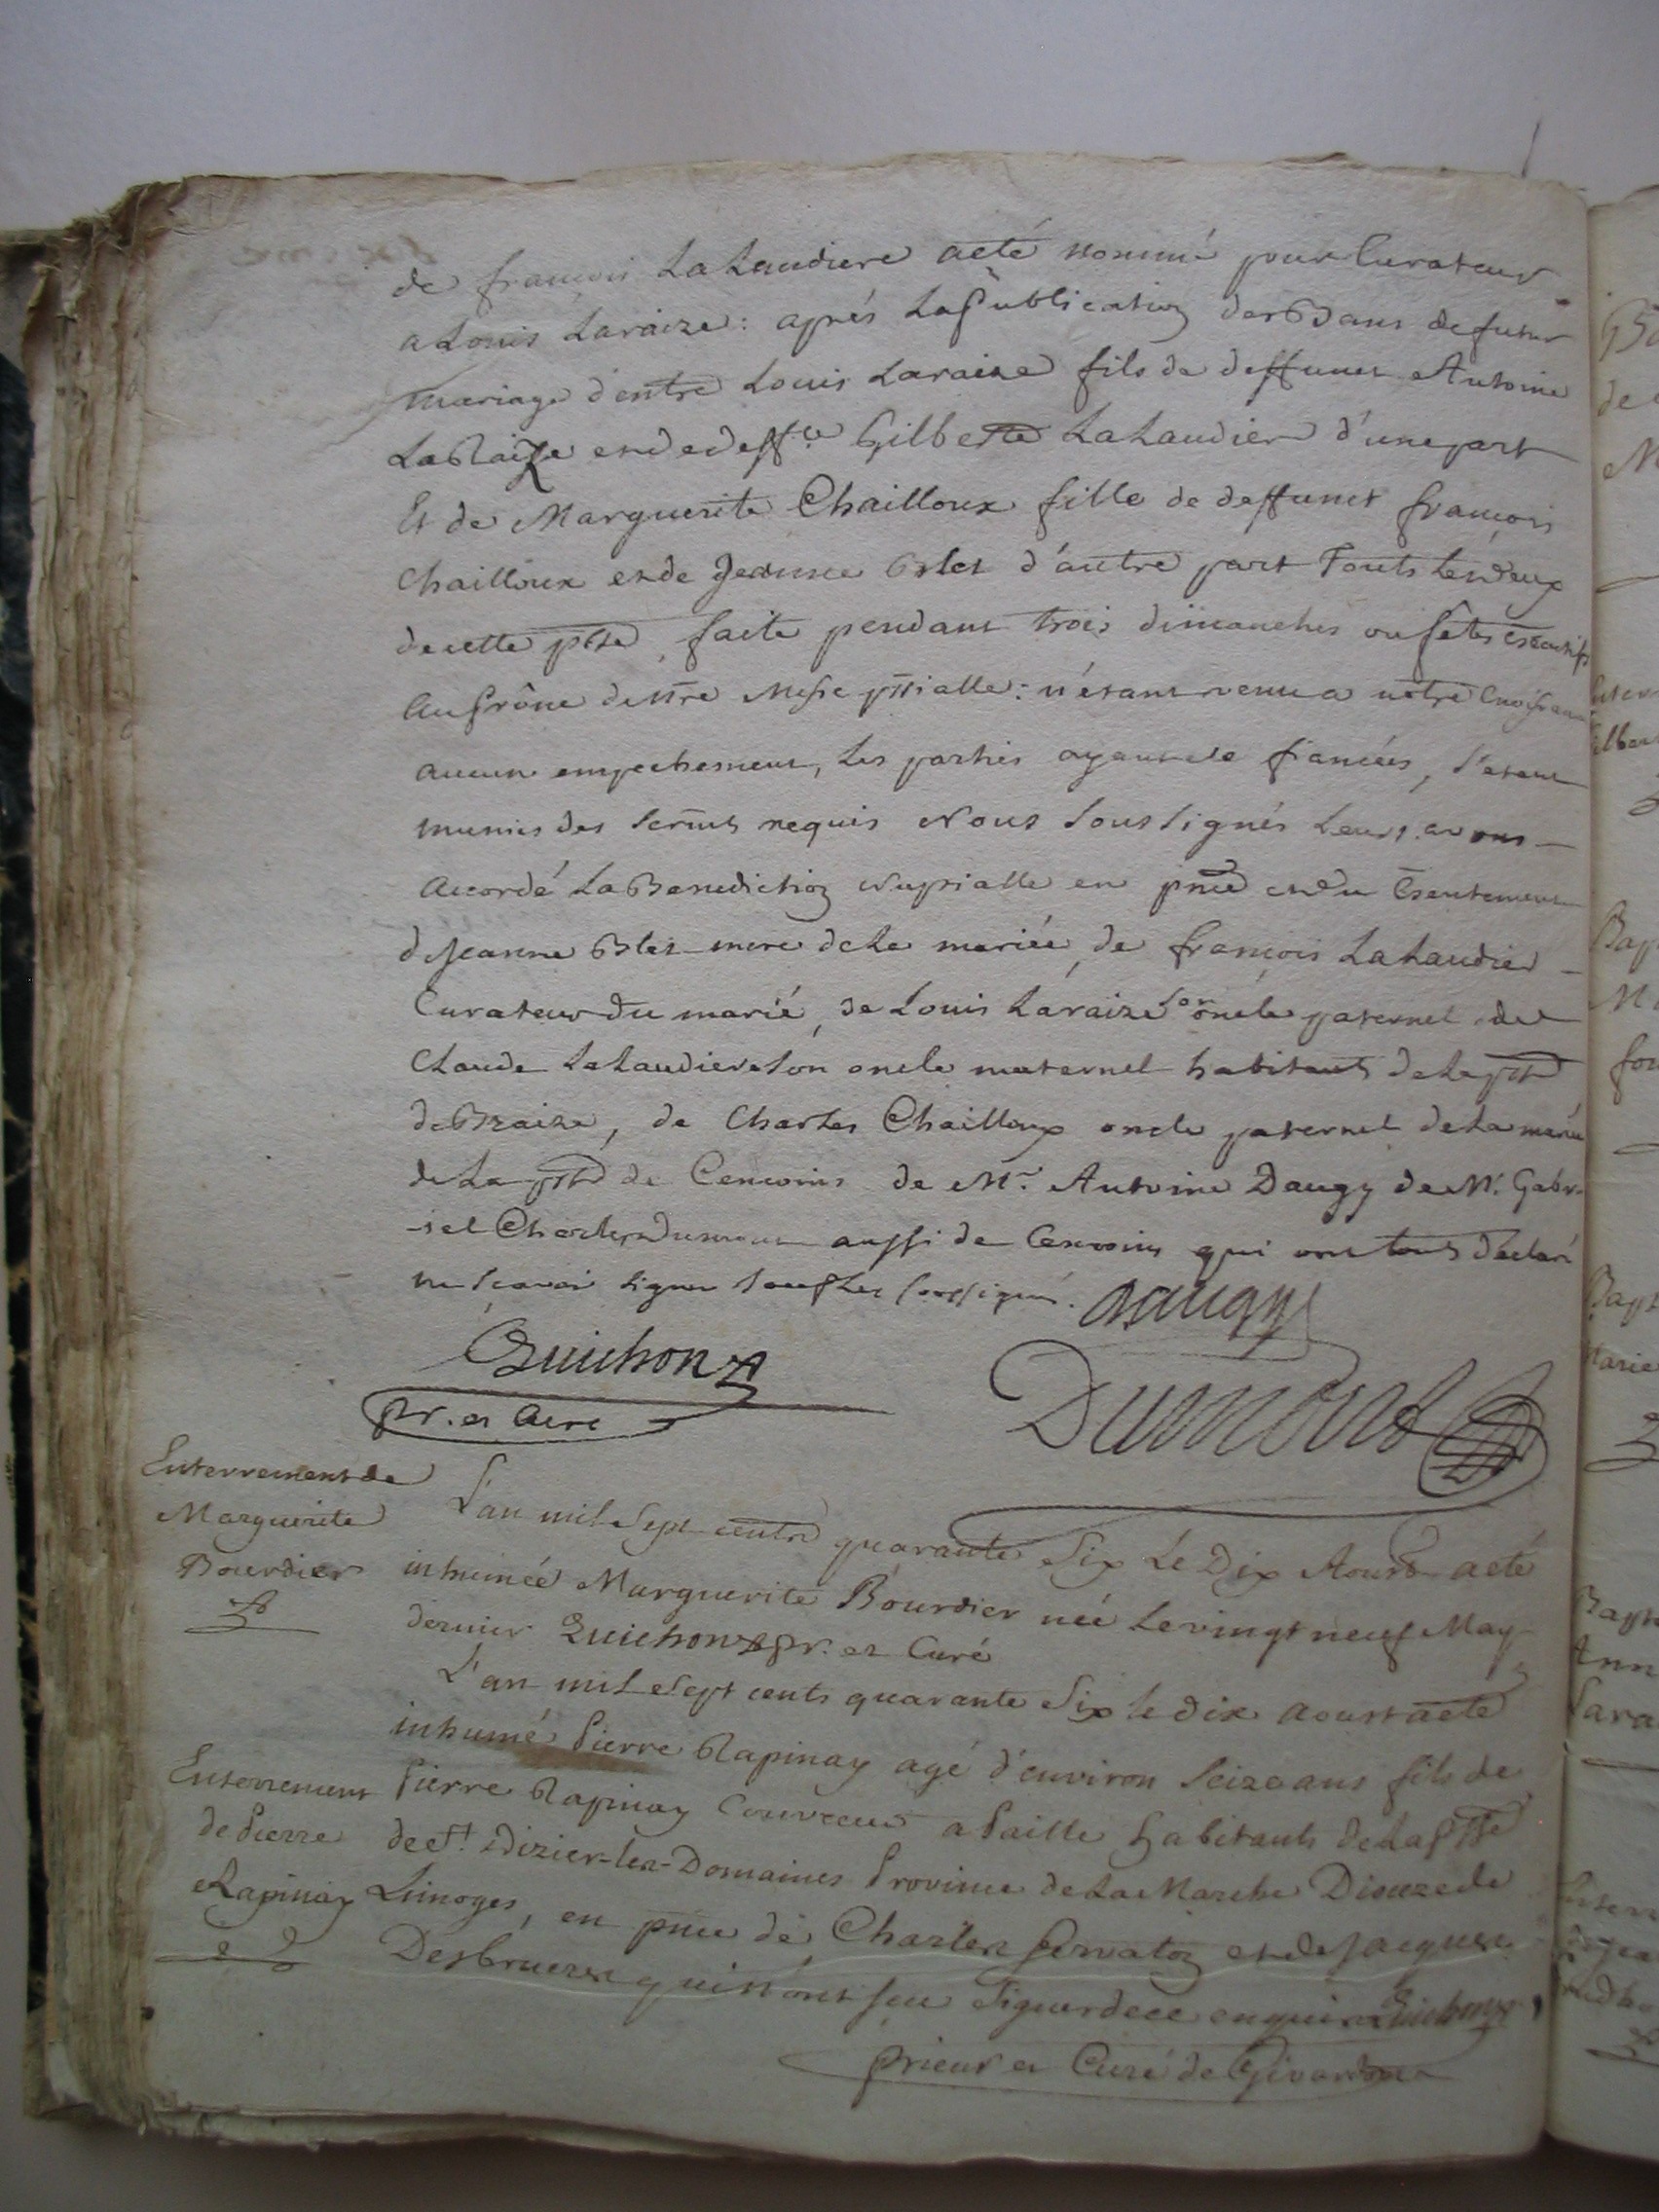 de francois LaLaudiere aeté nommé pour Curateur
a Louis Laraize: aprés La Publication des Bans de futur
mariage d'entre Louis Laraize fils de deffunct Antoine
LaRaize et de deff.te Gilberte LaLaudier d'une part
Et de Marguerite Chailloux fille de deffunct francois
Chailloux et de Jeanne Blet d'autre part Touts les deux
de cette psse faite pendant trois dimanches ou fêtes
Au Prône de nre Messe pssialle: n'étant venu a notre
aucun empechement, les parties ayant ete fiancées, s'etant
munies des Sermts requis Nous Soussignés Leurs avons
Accordé La Benediction Nuptialle en pnce et du Csentement
de Jeanne Blet mere de la mariée, de francois LaLaudier
Curateur du marié, de Louis Laraize Son oncle paternel de
Claude LaLaudier Son oncle maternel habitants de la psse
de Braize, de Charles Chailloux oncle paternel de la mariée
de La psse de Cencoins de Mr. Antoine Daugy de Mr. Gabr-
-iel Charles Dumont aussi de Cencoins qui ont touts declaré
ne Scavoir signer Sauf Les Soussignés. Daugy
Guichon
pr. et Curé
Dumont
Enterrement de
Marguerite
Bourdier
L'an mil Sept cents quarante Six Le Dix Aoust aeté
inhumée Marguerite Bourdier née Le vingt neuf May
dernier Guichon pr. et Curé
L'an mil Sept cents quarante Six le dix aoust aeté
inhumé Pierre Rapinay agé d'environ Seize ans fils de
Enterrement
de Pierre
Rapinay
Pierre Rapinay Couvreur a Paille habitants de La Psse
de St. Dizier-les-Domaines Province de La Marche Dioceze de
Limoges, en pnce de Charles Servaton et de Jacques
Desbruers qui n'ont sceu Signer de ce enquis Guichon
prieur et Curé de Givardon